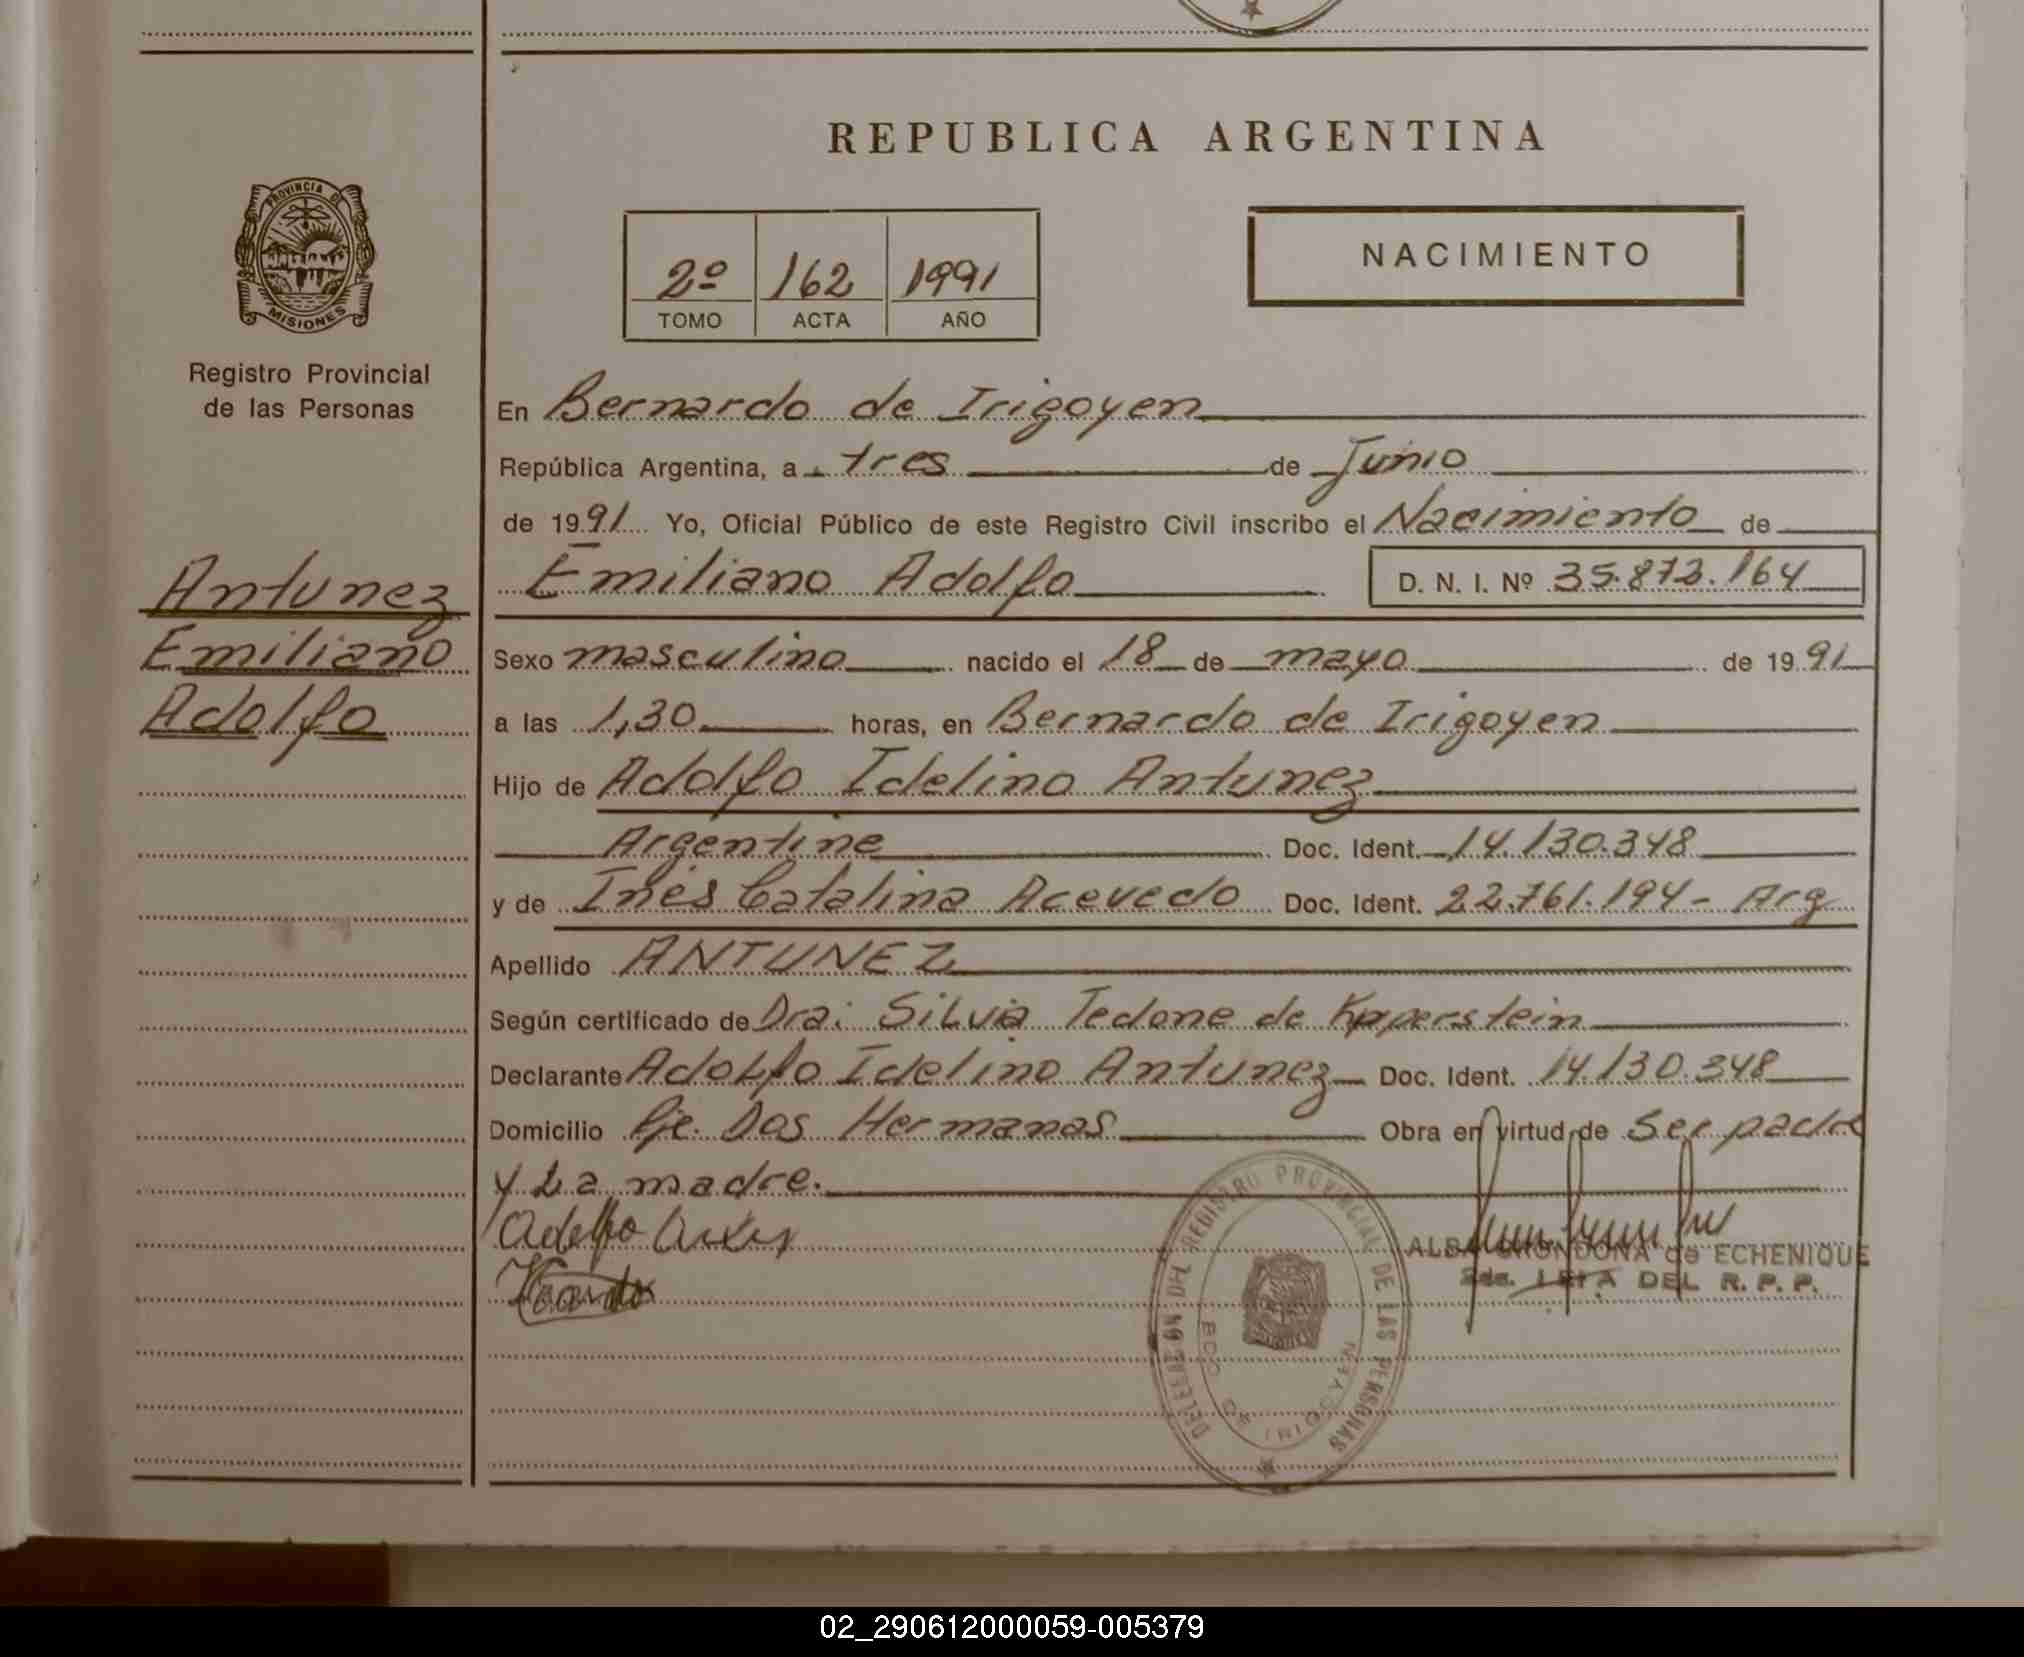 REPUBLICA ARGENTINA
PROVINCIA DE
MISIONES
Registro Provincial
de las Personas
2º 162 1991
TOMO ACTA AÑO
NACIMIENTO
En Bernardo de Irigoyen
República Argentina, a tres de Junio
de 1991 Yo, Oficial Público de este Registro Civil inscribo el Nacimiento de
Antunez
Emiliano
Adolfo
Emiliano Adolfo D. N. I. Nº 35.873.164
Sexo masculino nacido el 18 de mayo de 1991
a las 1,30 horas, en Bernardo de Irigoyen
Hijo de Adolfo Idelino Antunez
Argentine Doc. Ident. 14.130.348
y de Inés Catalina Acevedo Doc. Ident. 22.761.194 - Arg
Apellido ANTUNEZ
Según certificado de Dra: Silvia Tedone de
Declarante Adolfo Idelino Antunez Doc. Ident. 14.130.348
Domicilio Pje. Dos Hermanas Obra en virtud de Ser padre
y La madre.
Adolfo
ALBA de ECHENIQUE
DEL R. P. P.
DELEGACION DEL REGISTRO PROVINCIAL DE LAS PERSONAS
BDO DE IRIGOYEN
02_290612000059-005379